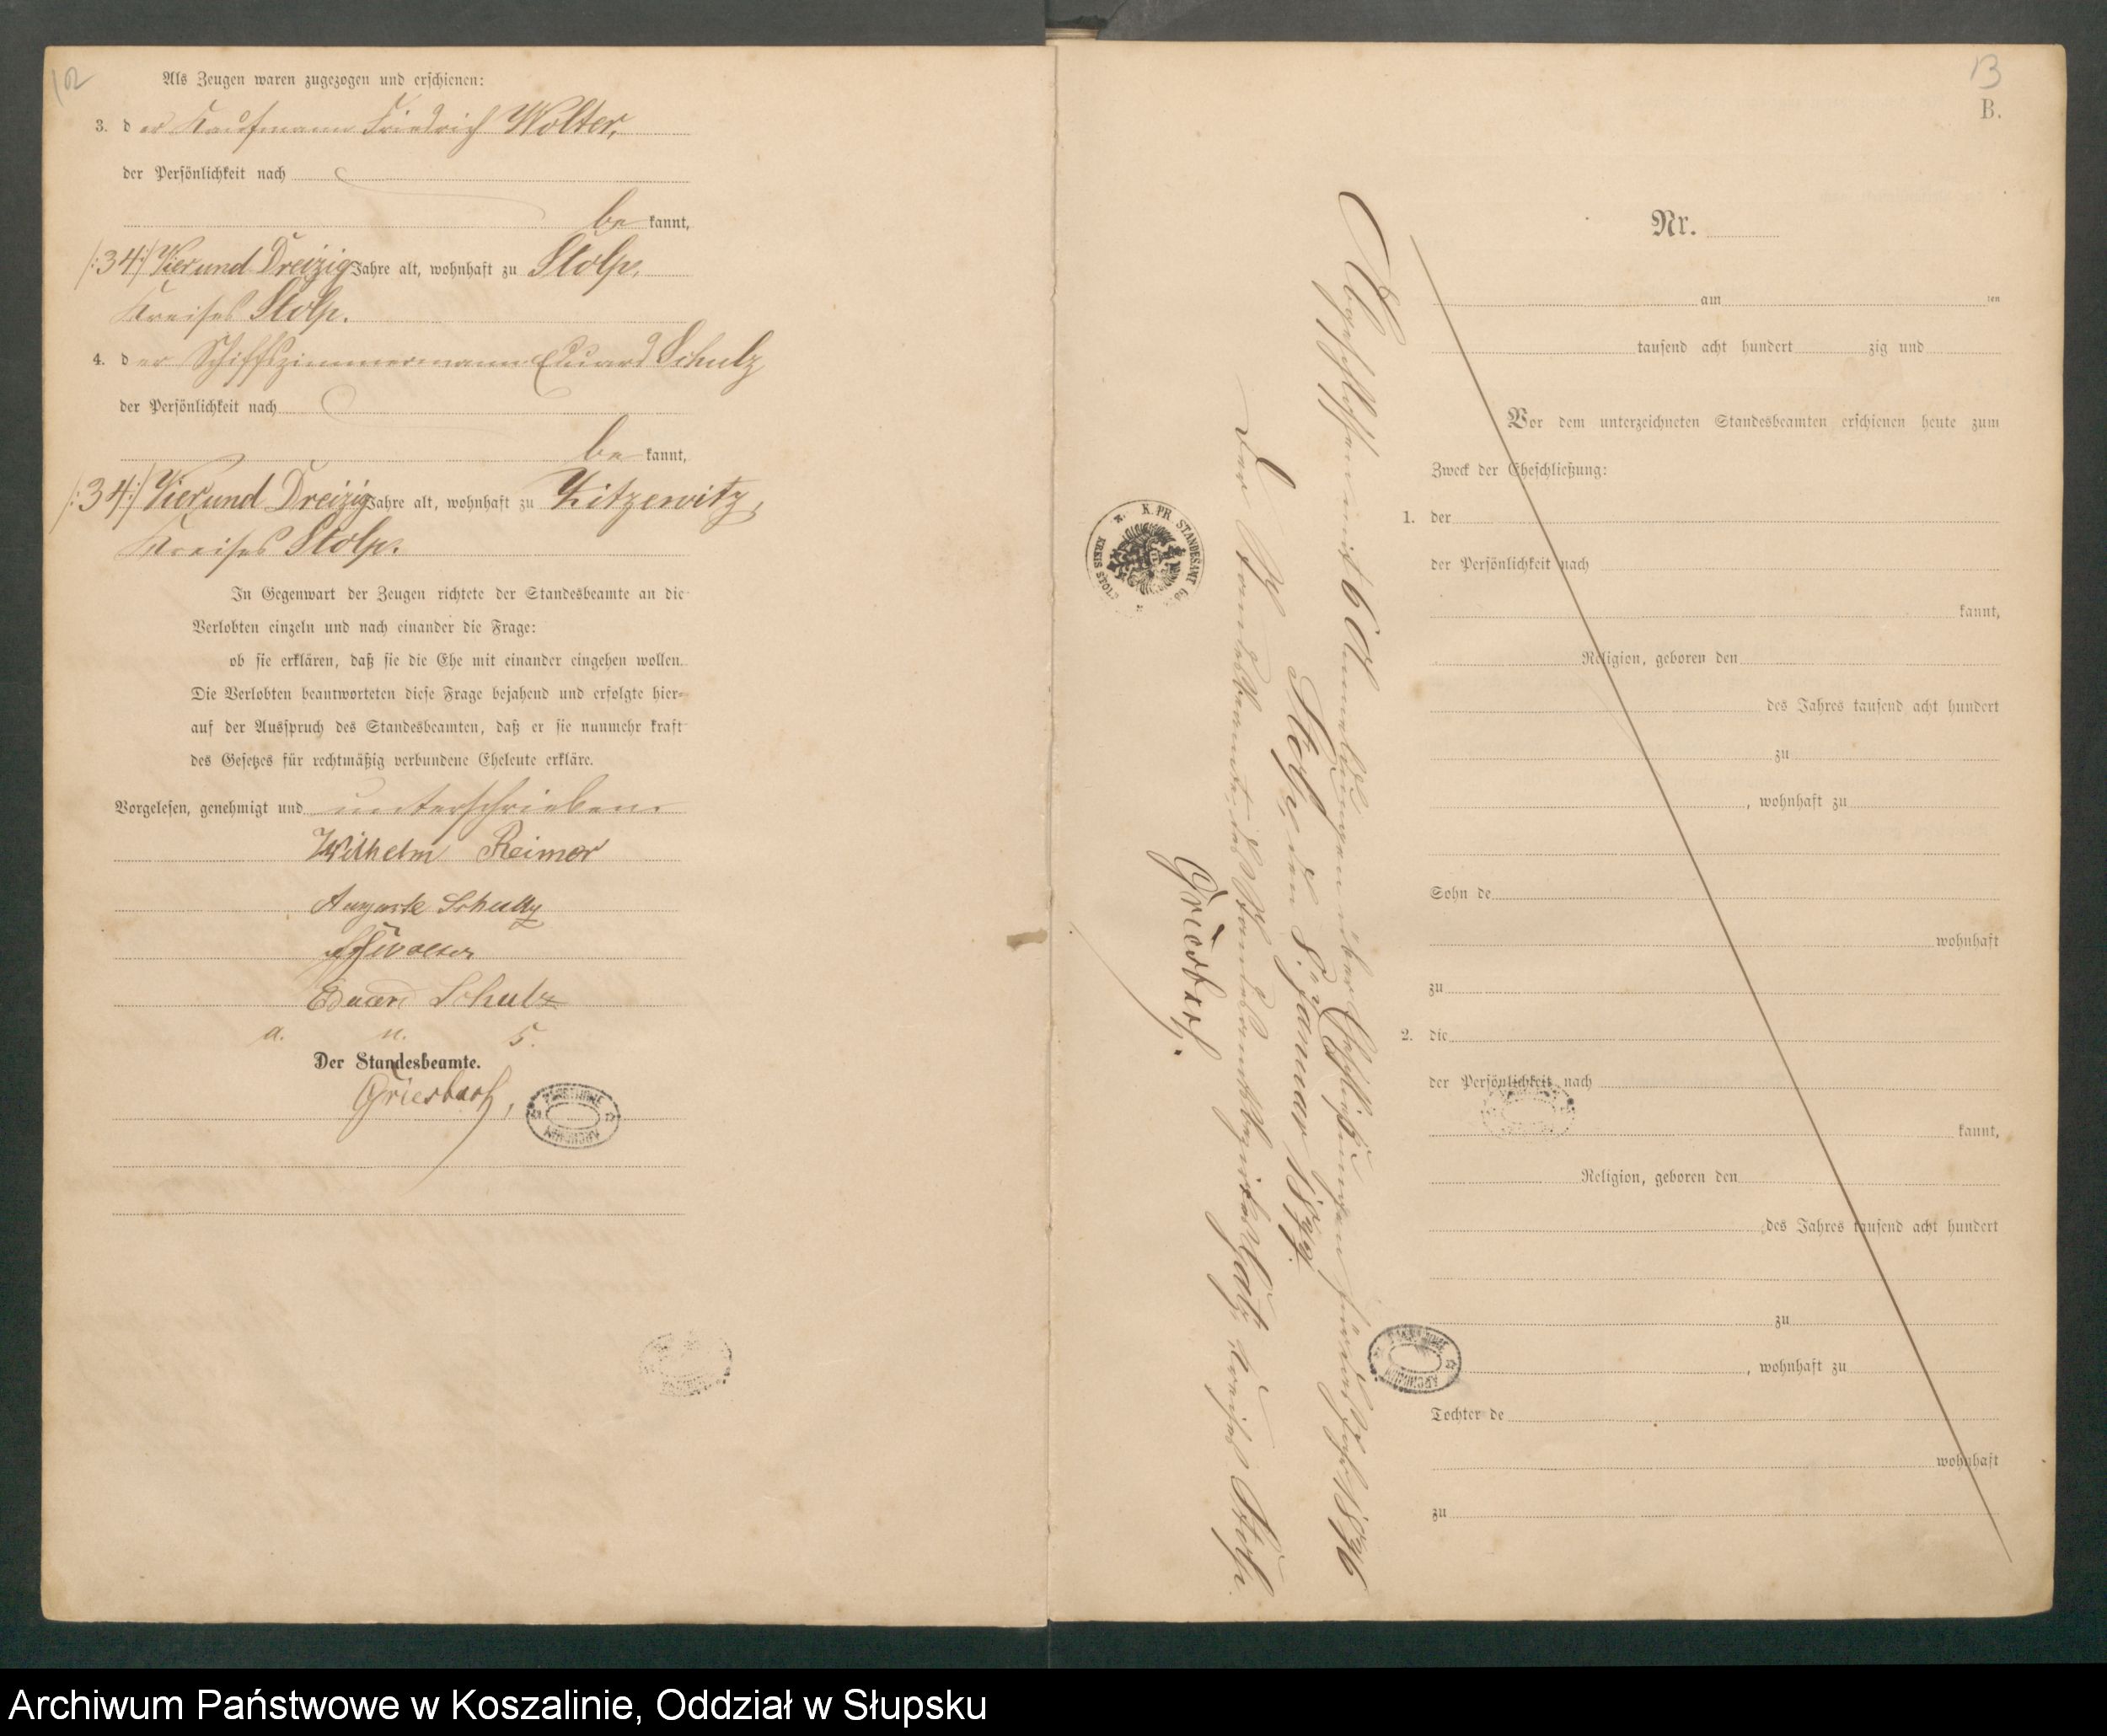 12
Als Zeugen waren zugezogen und erschienen:
3. der Kaufmann Friedrich Wolter,
der Persönlichkeit nach
be kannt,
/:34:/ Vierund Dreizig Jahre alt, wohnhaft zu Stolp,
Kreises Stolp.
4. der Schiffszimmermann Eduard Schulz
der Persönlichkeit nach
be kannt,
/:34:/ Vierund Dreizig Jahre alt, wohnhaft zu Kitzerwitz,
Kreises Stolp.
In Gegenwart der Zeugen richtete der Standesbeamte an die
Verlobten einzeln und nach einander die Frage:
ob sie erklären, daß sie die Ehe mit einander eingehen wollen.
Die Verlobten beantworteten diese Frage bejahend und erfolgte hier-
auf der Ausspruch des Standesbeamten, daß er sie nunmehr kraft
des Gesetzes für rechtmäßig verbundene Eheleute erkläre.
Vorgelesen, genehmigt und unterschrieben.
Wilhelm Reimer
Auguste Schultz
Wolter
Eduard Schulz
a. u. s.
Der Standesbeamte.
Griesbach,
ARCHIWUM
13
B.
Nr.
am ten
tausend acht hundert zig und
Vor dem unterzeichneten Standesbeamten erschienen heute zum
Zweck der Eheschließung:
1. der
der Persönlichkeit nach
kannt,
Religion, geboren den
des Jahres tausend acht hundert
zu
, wohnhaft zu
Sohn de
wohnhaft
zu
2. die
der Persönlichkeit nach
kannt,
Religion, geboren den
des Jahres tausend acht hundert
zu
, wohnhaft zu
Tochter de
wohnhaft
zu
Abgeschlossen mit 6 Anmeldungen über Eheschließungen für das Jahr 1876
Stolp, den 8. Januar 1877.
Der Standesbeamte des Standesamtsbezirks Kreises Stolp.
Griesbach.
K. PR. STANDESAMT
KREIS STOLP
ARCHIWUM
Archiwum Państwowe w Koszalinie, Oddział w Słupsku